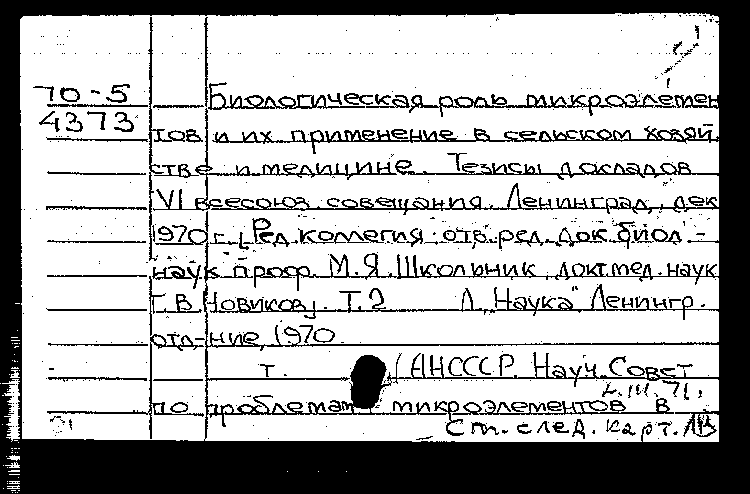 70-5
4373
Биологическая роль микроэлемен
тов и их применение в сельском хозяй
стве и медицине. Тезисы докладов
VI всесоюз. совещания. Ленинград, дек
1970 г. [Ред. коллегия: отв. ред. док. биол.-
наук проф. М.Я. Школьник, докт. мед. наук
Г.В. Новиков]. Т.2 Л., "Наука" Ленингр.
отд-ние, 1970.
т. (АН СССР. Науч. Совет
по проблемам микроэлементов в
См. след. карт.